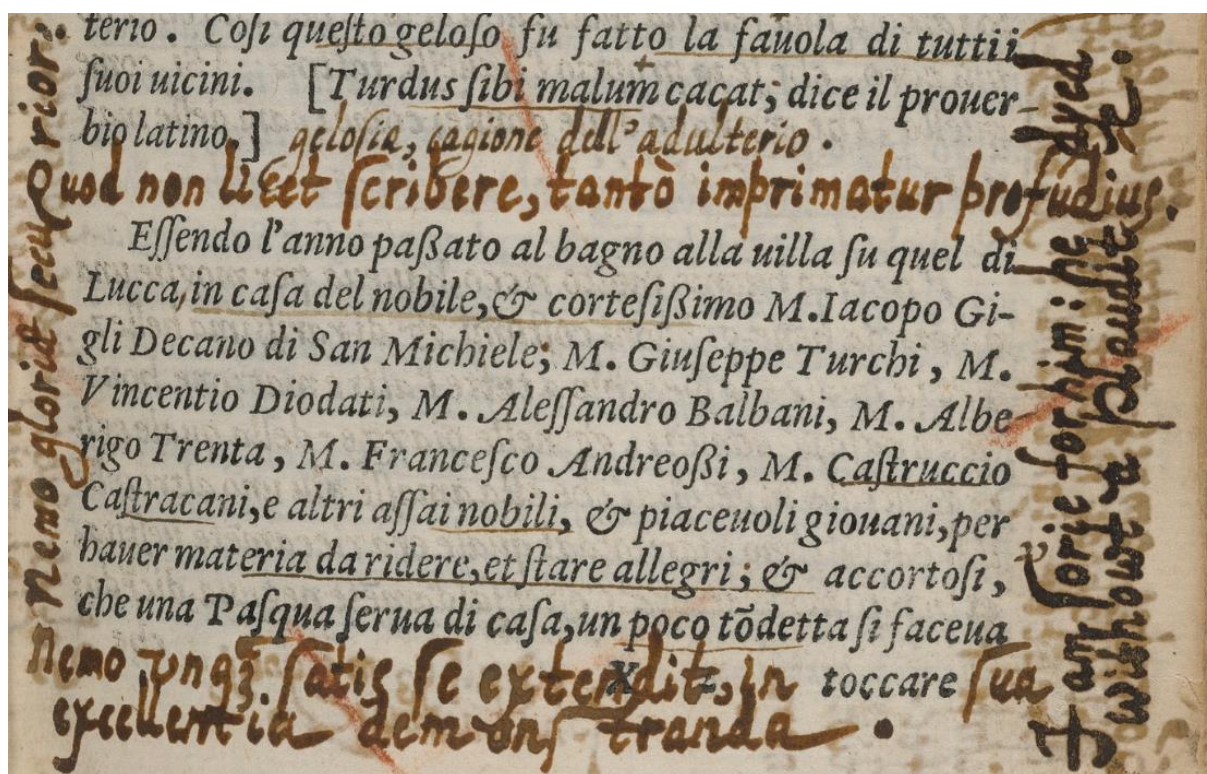 terio. Coſi queſto geloſo fu fatto la fauola di tuttii
ſuoi uicini. [Turdus ſibi malum cacat; dice il prouer-
bio latino.] geloſia, cagione dell'adulterio.
Quod non licet ſcribere, tantò imprimatur profūdius.
Eſſendo l'anno paßato al bagno alla uilla ſu quel di
Lucca, in caſa del nobile, & corteſißimo M. Iacopo Gi-
gli Decano di San Michiele; M. Giuſeppe Turchi, M.
Vincentio Diodati, M. Aleſſandro Balbani, M. Albe-
rigo Trenta, M. Franceſco Andreoßi, M. Caſtruccio
Caſtracani, e altri aſſai nobili, & piaceuoli giouani, per
hauer materia da ridere, et ſtare allegri; & accortoſi,
che una Paſqua ſerua di caſa, un poco tōdetta ſi faceua
toccare
Nemo vnqȝ ſatis ſe extendit, in ſua
excellentia demonſtranda.
Nemo gloriæ ſecuꝰ prior.
I am ſorie for him: he dyed
without a plaudite.